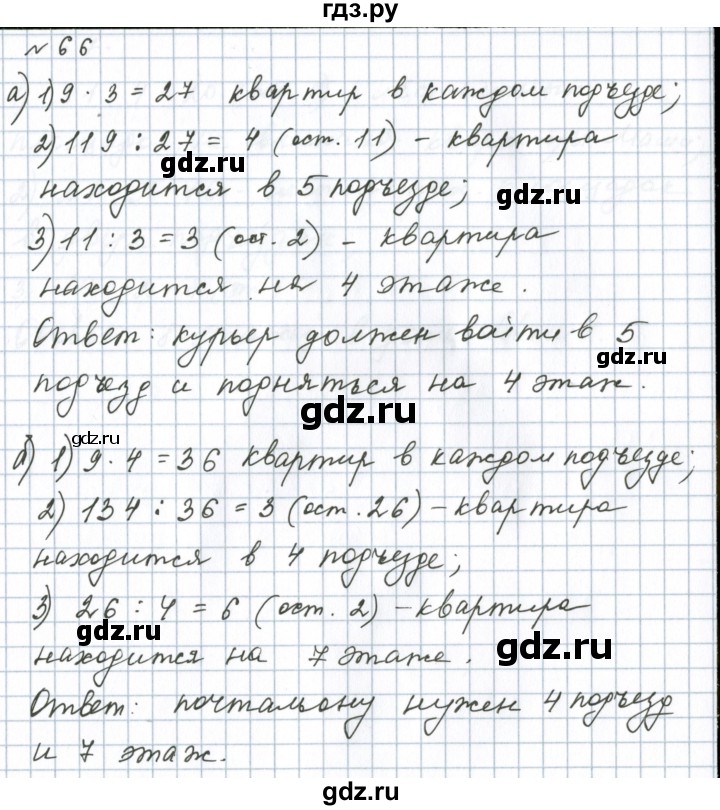 гдз.ру
№ 66
а) 1) 9 · 3 = 27 квартир в каждом подъезде;
2) 119 : 27 = 4 (ост. 11) – квартира
gdz.ru
находится в 5 подъезде;
gdz.ru
3) 11 : 3 = 3 (ост. 2) – квартира
находится на 4 этаже.
Ответ: курьер должен войти в 5
gdz.ru
подъезд и подняться на 4 этаж.
gdz.ru
gdz.ru
б) 1) 9 · 4 = 36 квартир в каждом подъезде;
2) 134 : 36 = 3 (ост. 26) – квартира
gdz.ru
находится в 4 подъезде;
3) 26 : 4 = 6 (ост. 2) – квартира
gdz.ru
находится на 7 этаже.
gdz.ru
Ответ: почтальону нужен 4 подъезд
и 7 этаж.
gdz.ru
gdz.ru